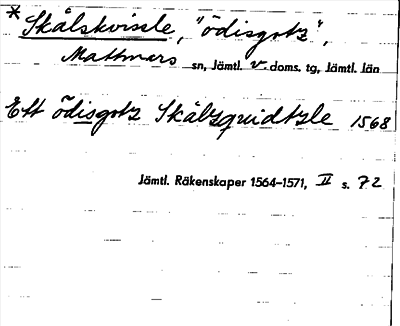 * Skålskvissle, "ödisgotz",
Mattmars sn, Jämtl. v doms. tg, Jämtl. län
Ett ödisgotz Skålzquidtzle 1568
Jämtl. Räkenskaper 1564–1571, II s. 72